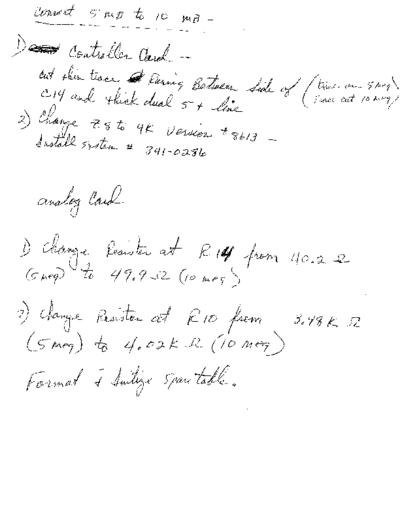 Convert 5 mB to 10 mB -
1) Controller Card --
cut thin trace Running Between side of (trace on 5 meg)
C14 and thick dual 5+ line (trace cut 10 meg)
2) Change Z-8 to 4K Version # 8613 -
Install system # 341-0286
analog Card
1) Change Resistor at R14 from 40.2 Ω
(5 meg) to 49.9 Ω (10 meg)
2) Change Resistor at R10 from 3.48 K Ω
(5 meg) to 4.02 K Ω (10 meg)
Format & Initize spare table.